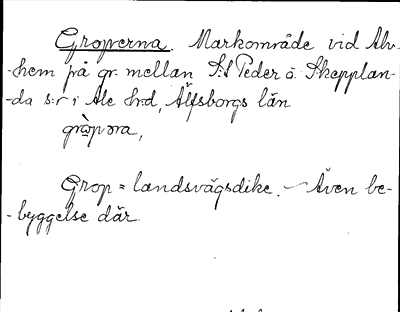 Groperna. Markområde vid Alv-
-hem på gr. mellan S:t Peder o. Skepplan-
-da s:r i Ale hrd, Älfsborgs län
grò̤pəra,
Grop = landsvägsdike. — Även be-
-byggelse där.